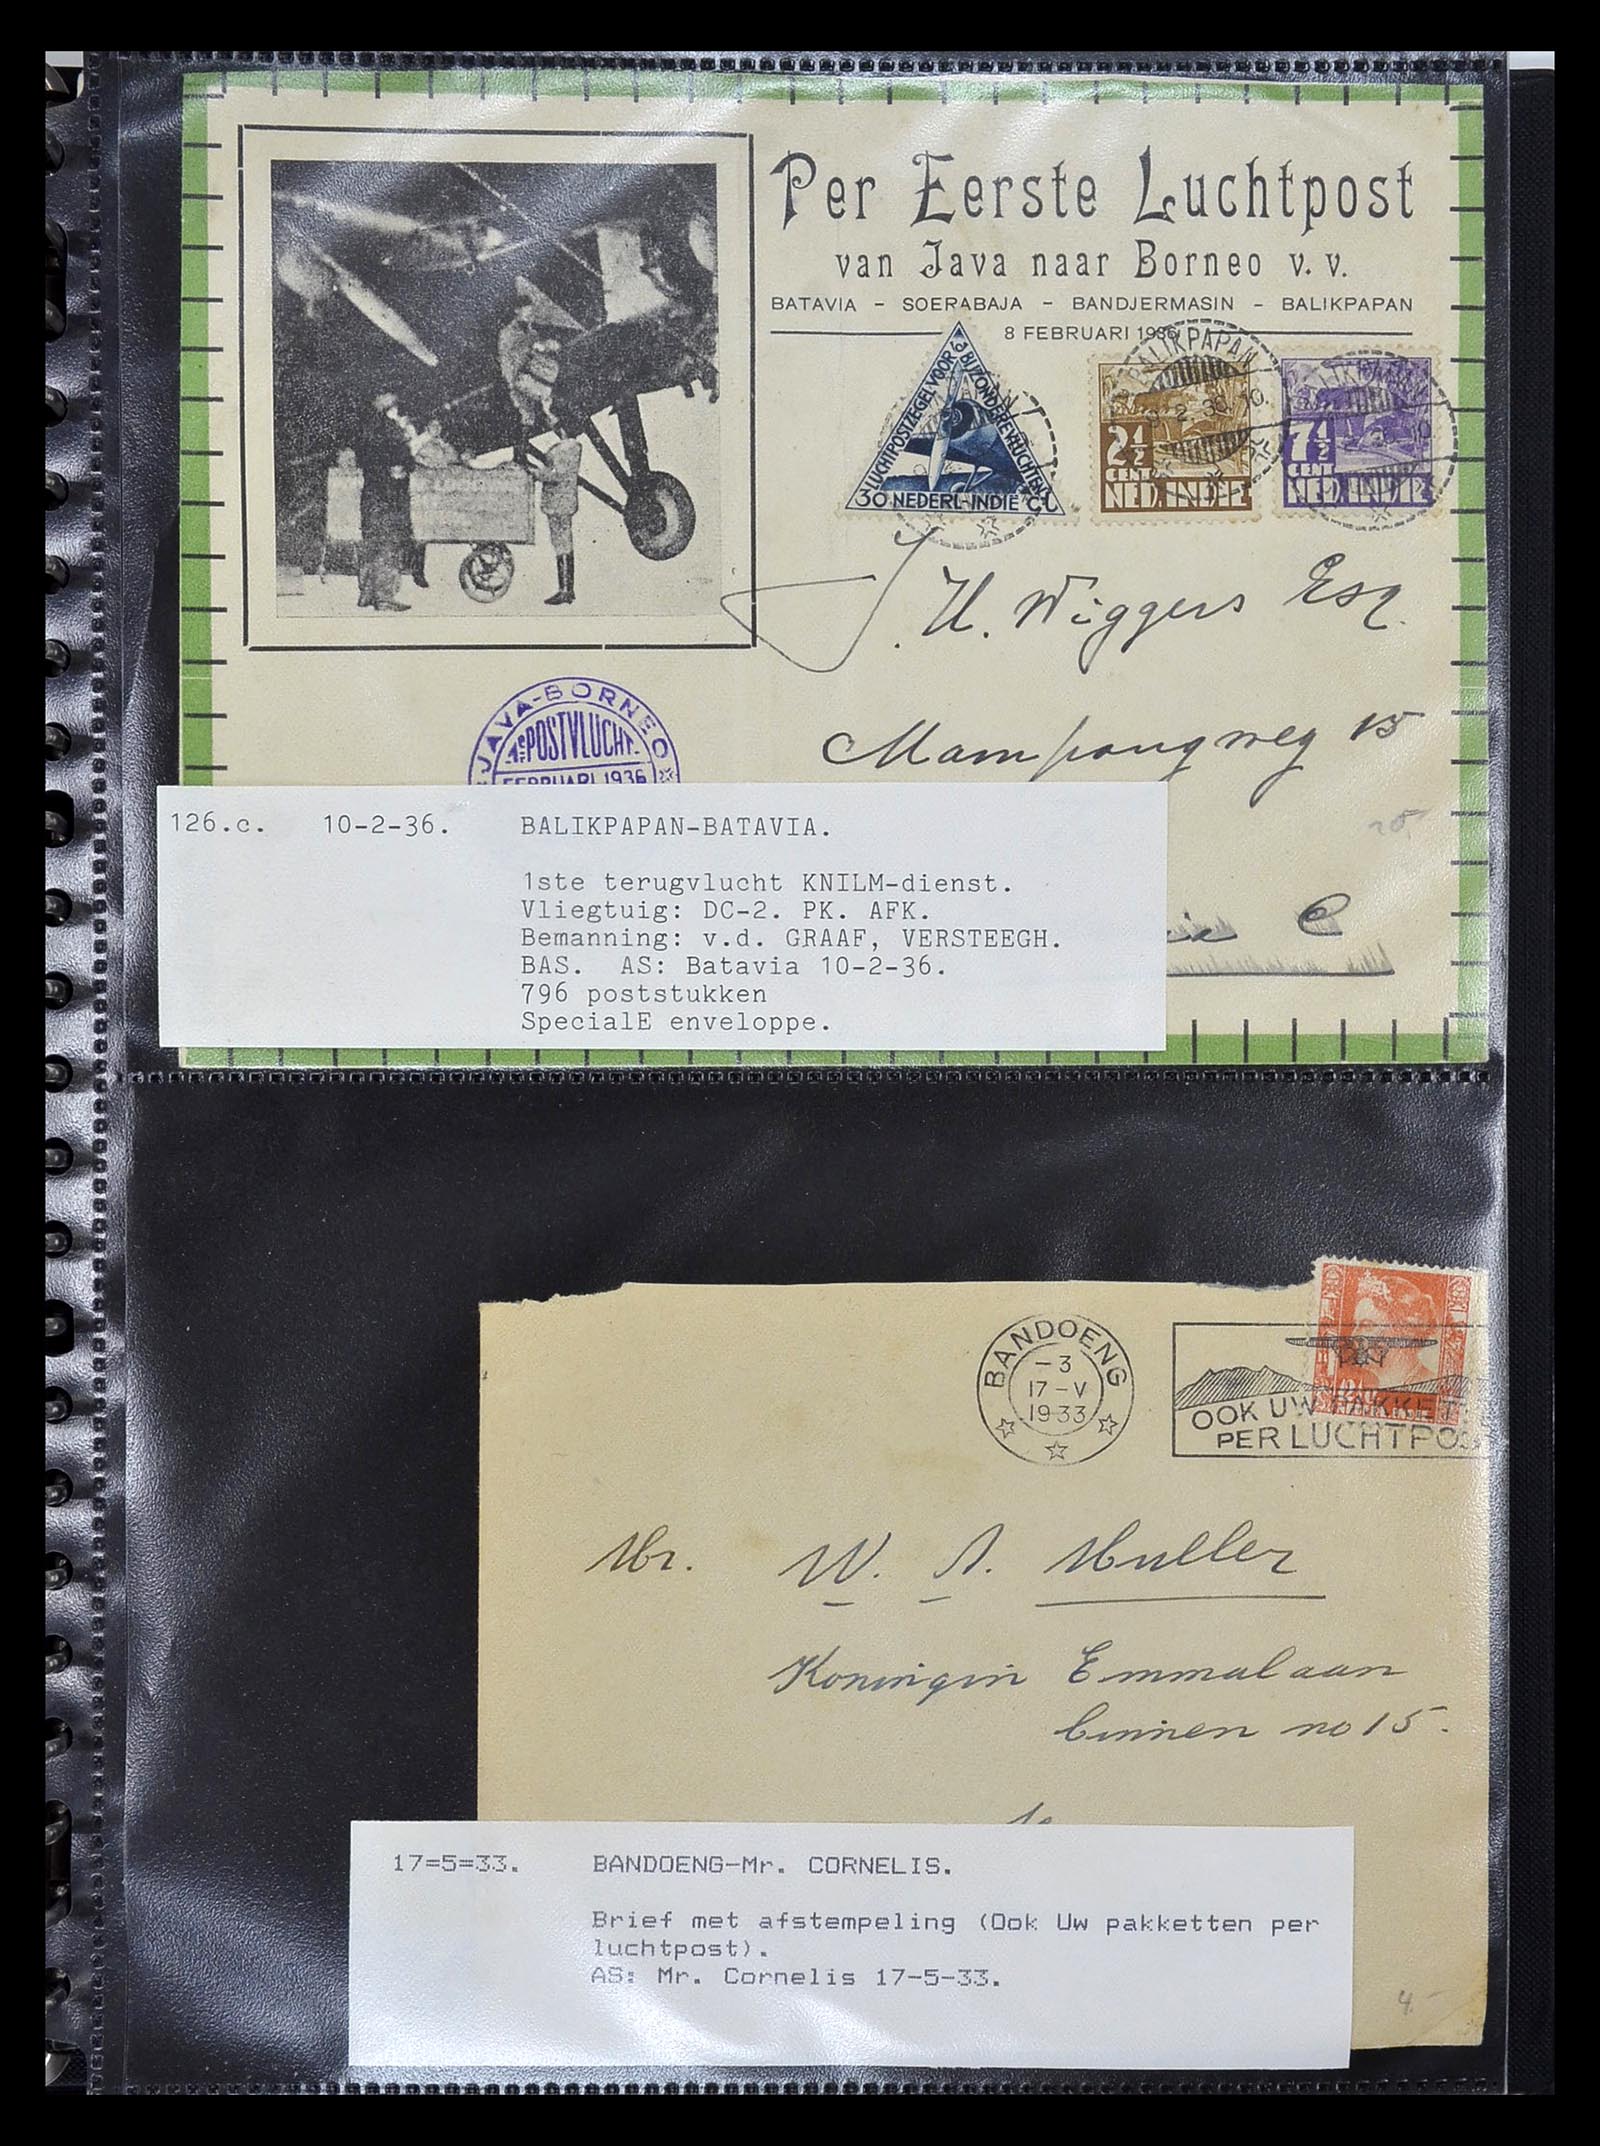 Per Eerste Luchtpost
van Java naar Borneo v. v.
BATAVIA - SOERABAJA - BANDJERMASIN - BALIKPAPAN
8 FEBRUARI 1936
LUCHTPOSTZEGEL VOOR BIJZONDERE VLUCHTEN
30 NEDERL-INDIË CT
BALIKPAPAN
2½
CENT
NED. INDIE
7½
CENT
NED. INDIE
J. H. Wiggers Esq.
Mampangweg 15
JAVA-BORNEO
1e POSTVLUCHT
FEBRUARI 1936
C
126.c. 10-2-36. BALIKPAPAN-BATAVIA.
1ste terugvlucht KNILM-dienst.
Vliegtuig: DC-2. PK. AFK.
Bemanning: v.d. GRAAF, VERSTEEGH.
BAS. AS: Batavia 10-2-36.
796 poststukken
SpecialE enveloppe.
BANDOENG
-3
17-V
1933
OOK UW PAKKET
PER LUCHTPOS
Mr. W. A. Muller
Koningin Emmalaan
binnen no 15.
te
17=5=33. BANDOENG-Mr. CORNELIS.
Brief met afstempeling (Ook Uw pakketten per
luchtpost).
AS: Mr. Cornelis 17-5-33.
4.-